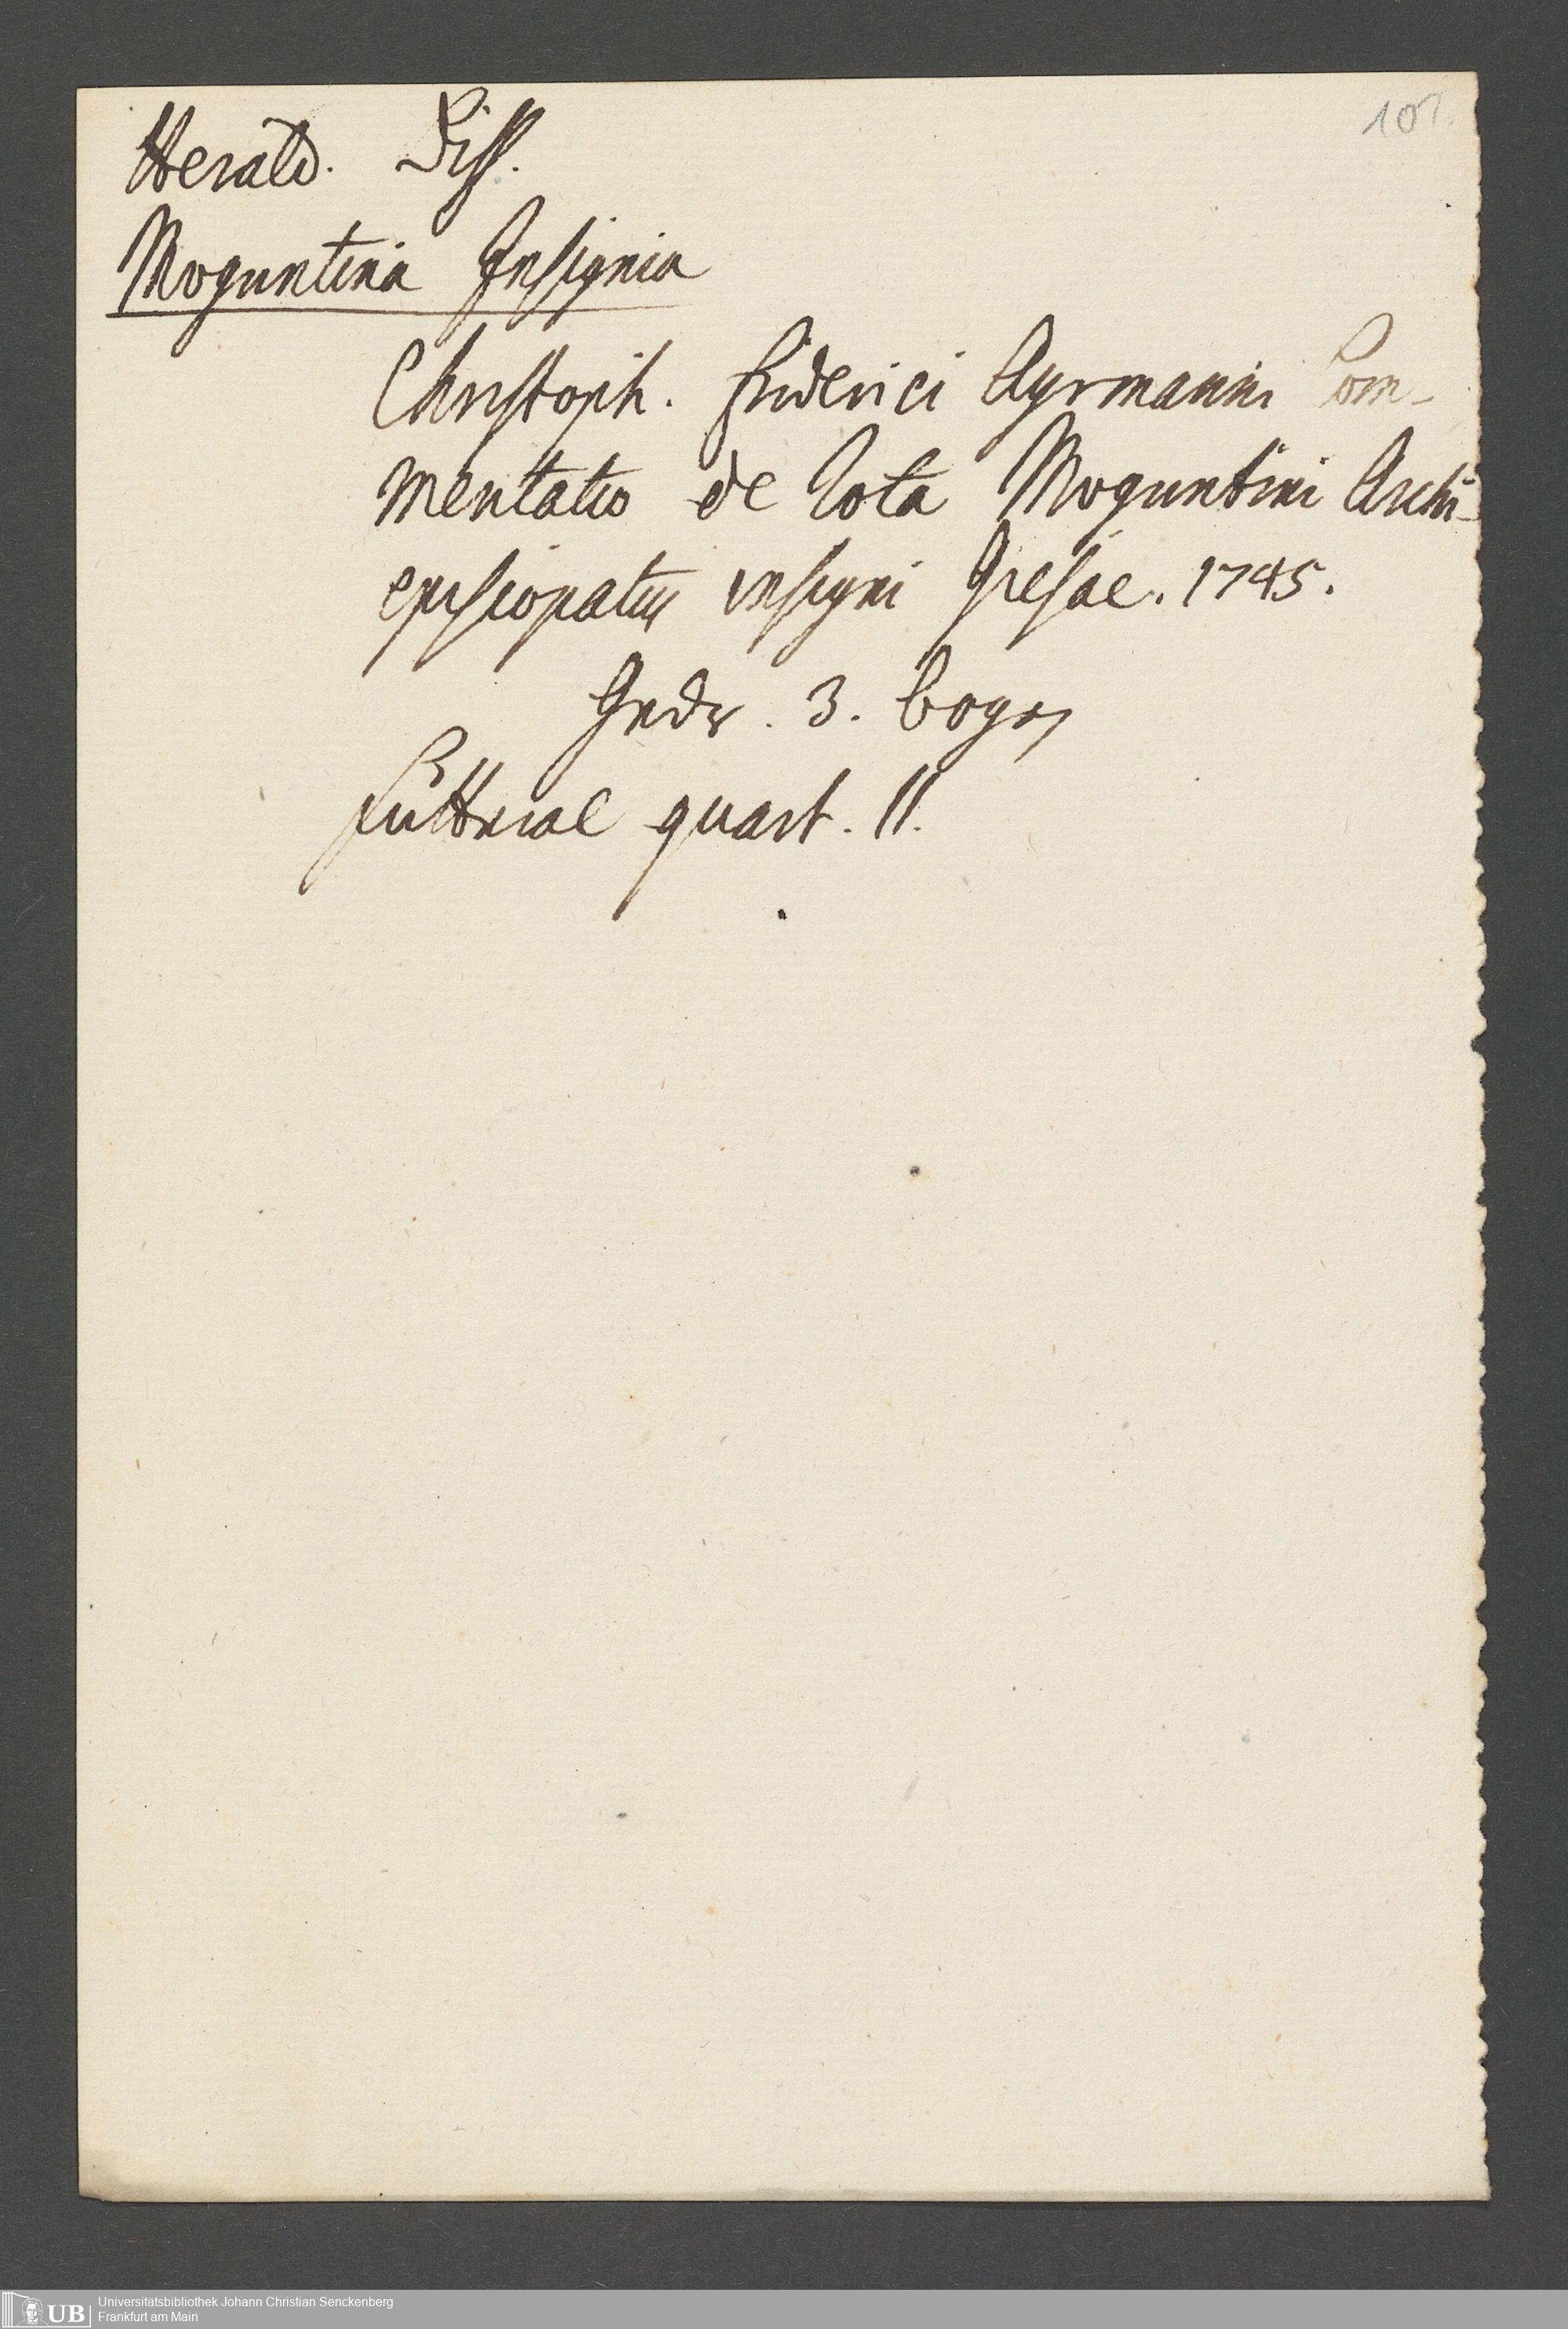 107.
Herald. Diss.
Moguntina Insignia
Christoph. Friderici Ayrmanni Com-
mentatio de Rota Moguntini Archi-
episcopatus insigni Giesae. 1745.
3. bogen
Futteral quart. 11.
UB Universitätsbibliothek Johann Christian Senckenberg
Frankfurt am Main